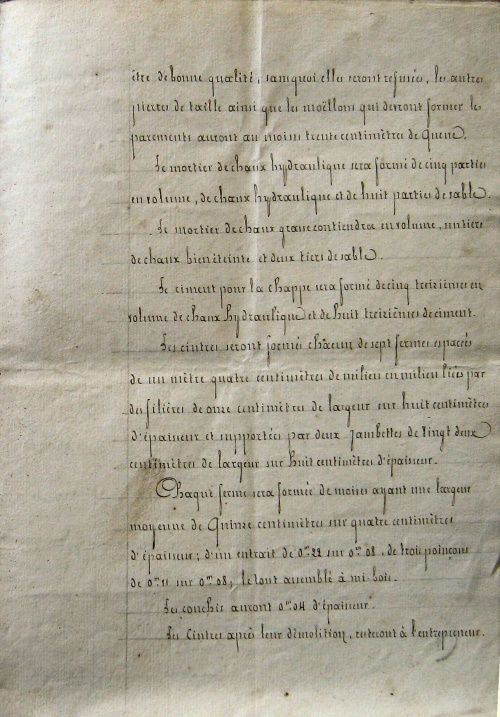 être de bonne qualité, sans quoi elles seront refusées, les autres
pierres de taille ainsi que les moëllons qui devront former les
parements auront au moins trente centimètres de Queue.
Le mortier de chaux hydraulique sera formé de cinq parties
en volume, de chaux hydraulique et de huit parties de sable.
Le mortier de chaux grasse contiendra en volume, un tiers
de chaux bien éteinte et deux tiers de sable.
Le ciment pour la chappe sera formé de cinq treizièmes en
volume de chaux hydraulique et de huit treizièmes de ciment.
Les cintres seront formés chacun de sept fermes espacées
de un mètre quatre centimètres de milieu en milieu liées par
des filières de onze centimètres de largeur sur huit centimètres
d'épaisseur et supportées par deux Jambettes de vingt deux
centimètres de largeur sur huit centimètres d'épaisseur.
Chaque ferme sera formée de moises ayant une largeur
moyenne de Quinze centimètres sur quatre centimètres
d'épaisseur; d'un entrait de 0.m 22 sur 0.m 08, de trois poinçons
de 0.m 11 sur 0.m 08; le tout assemblé à mi-bois.
Les couchis auront 0.m 04 d'épaisseur.
Les Cintres après leur démolition, resteront à l'entrepreneur.